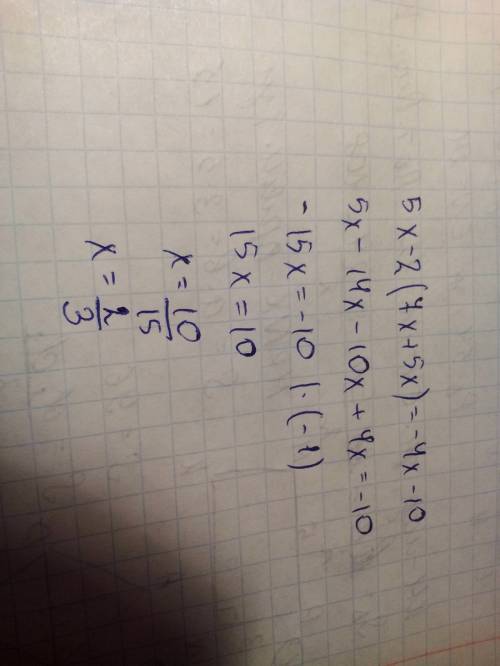 5x-2(7x+5x)=-4x-10
5x-14x-10x+4x=-10
-15x=-10 |·(-1)
15x=10
x=10/15
x=2/3